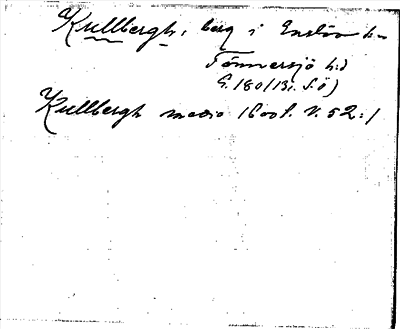 Kullbergh, berg i Enslöv sn
Tönnersjö hd
G. 180/13i. S.Ö)
Kullbergh medio 1600 t. V. 52:1